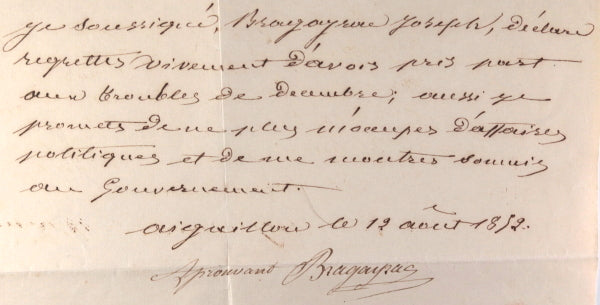 je soussigné, Bragayrac Joseph, déclare
regretter vivement d'avoir pris part
aux troubles de decembre; aussi je
promets de ne plus m'occuper d'affaires
politiques et de me montrer soumis
au Gouvernement.
aiguillon le 12 août 1852.
Aprouvant Bragayrac